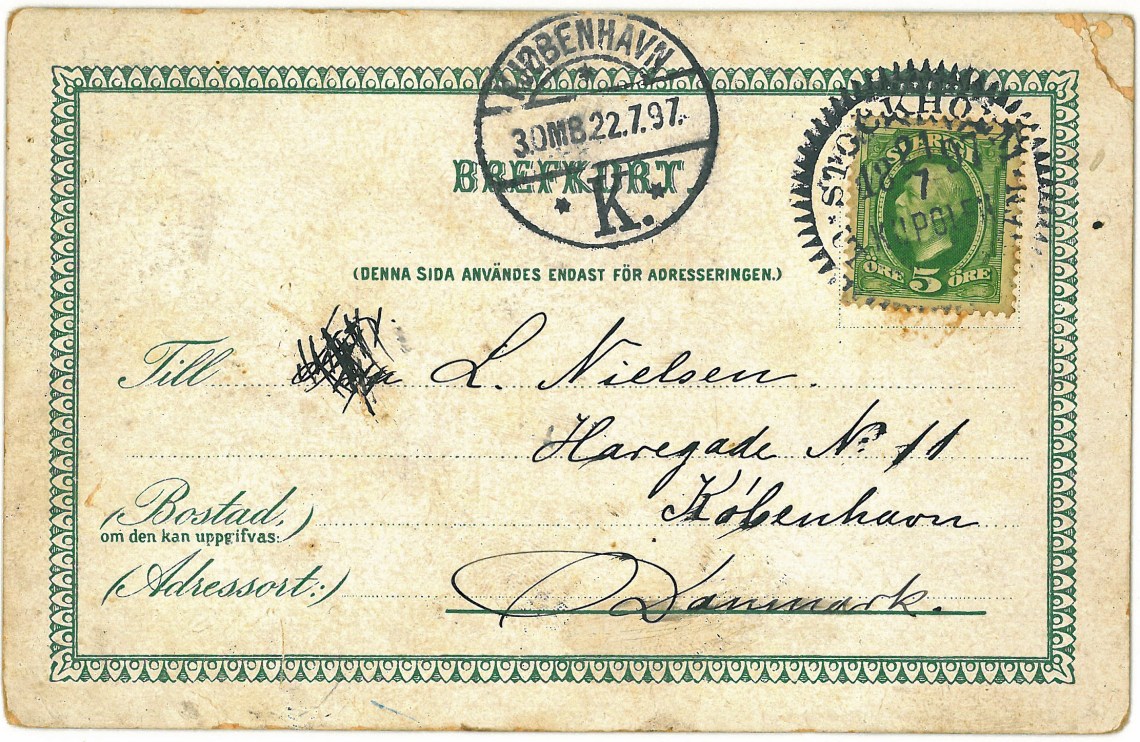 KJØBENHAVN
3.OMB.22.7.97.
K.
BREFKORT
STOCKHOLM
7
SVERIGE
ÖRE 5 ÖRE
(DENNA SIDA ANVÄNDES ENDAST FÖR ADRESSERINGEN.)
Till L. Nielsen.
Haregade No 11
København
(Bostad,)
om den kan uppgifvas:
(Adressort:)
Danmark.